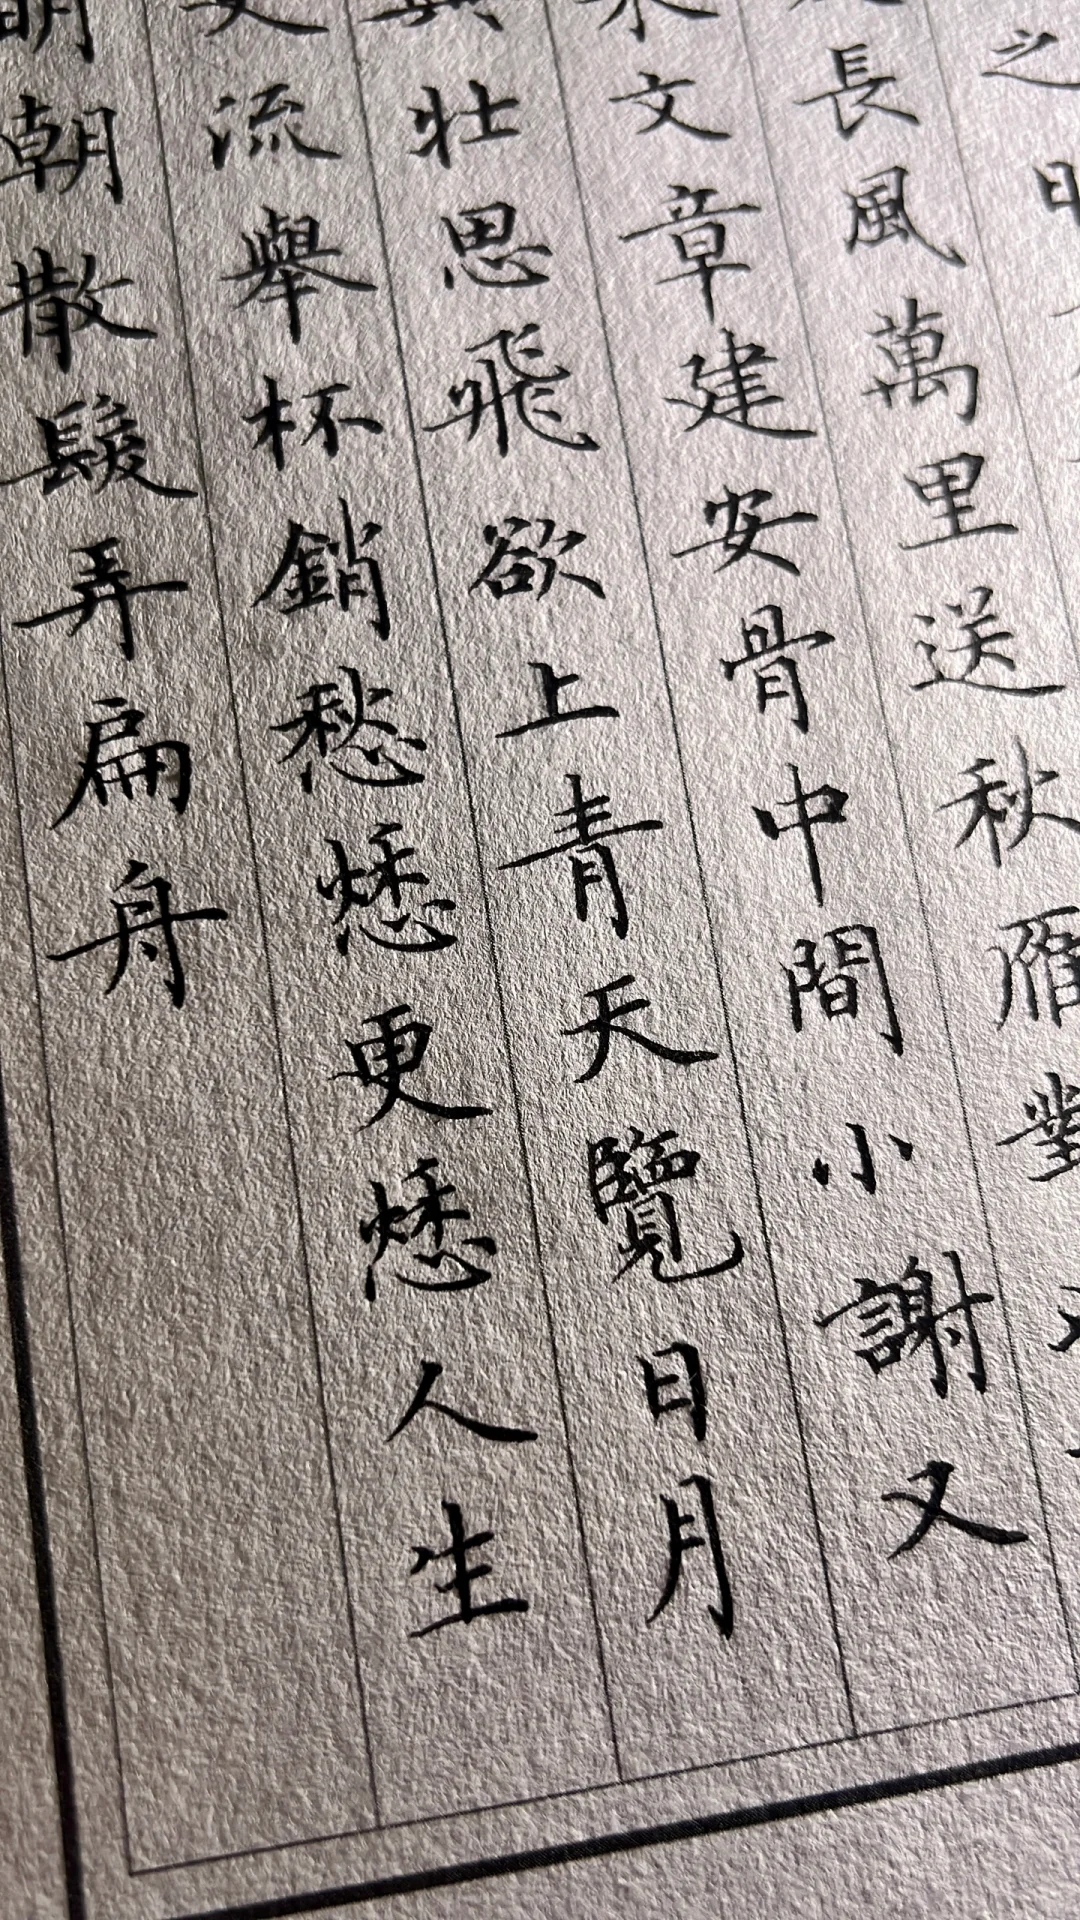 之
長風萬里送秋雁對
文章建安骨中間小謝又
興壯思飛欲上青天覽日月
更流舉杯銷愁愁更愁人生
明朝散髮弄扁舟